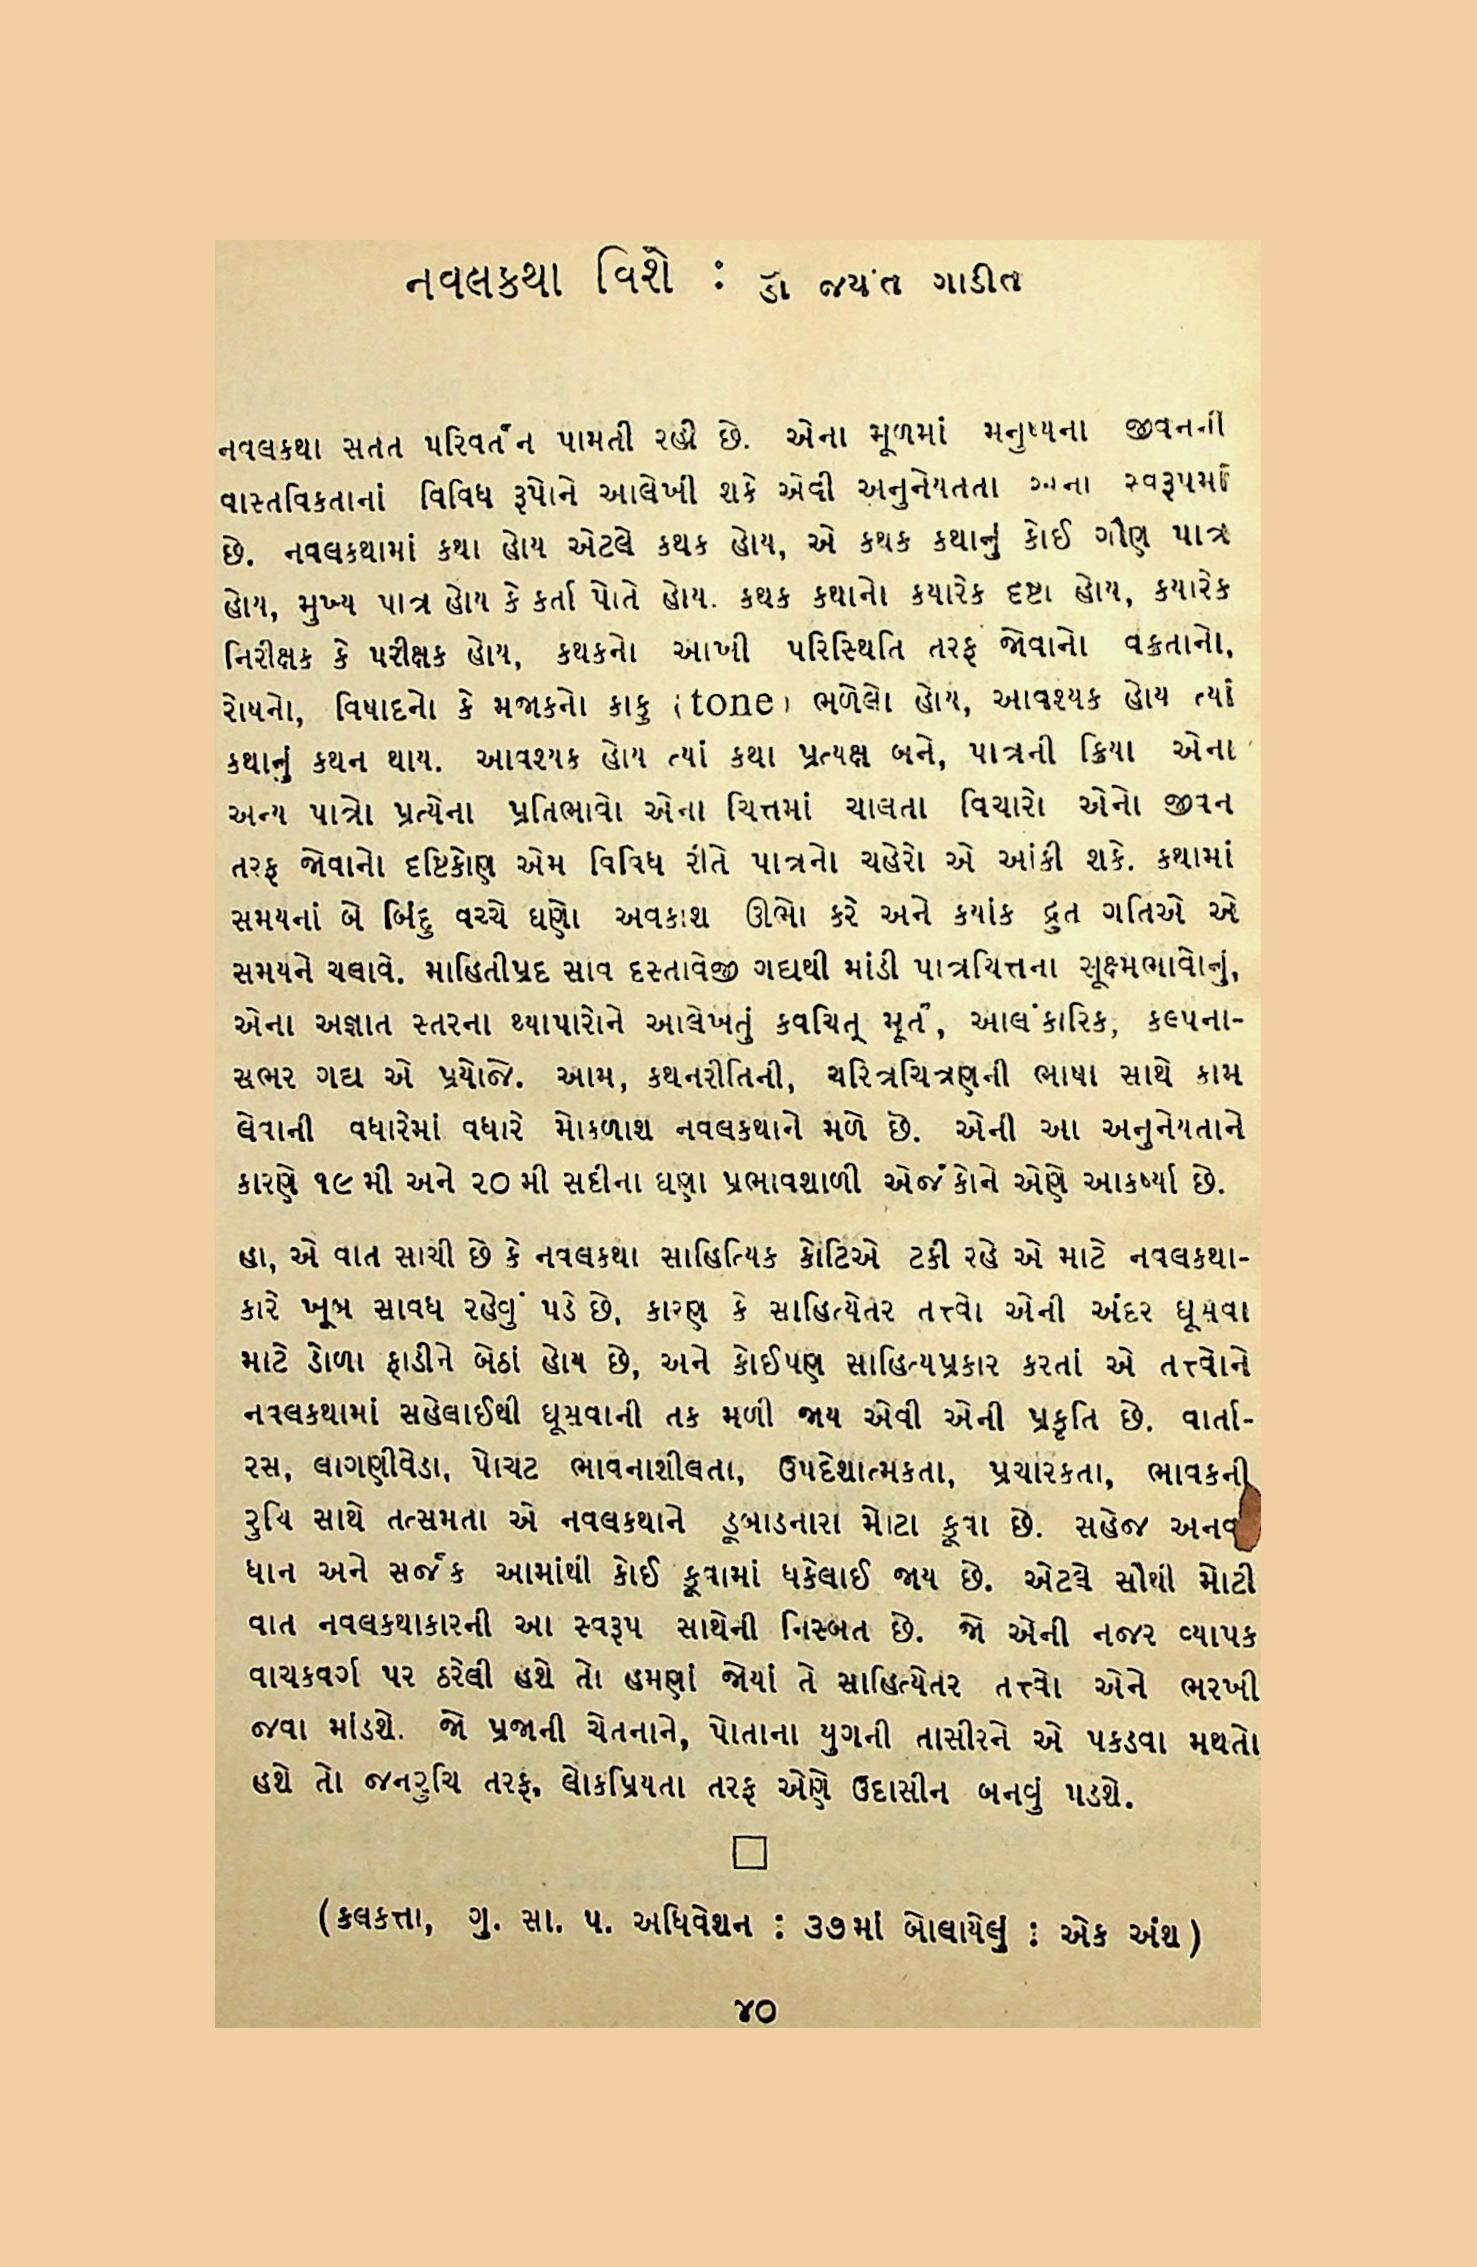 નવલકથા વિશે : ડૉ જયંત ગાડીત
નવલકથા સતત પરિવર્તન પામતી રહી છે. એના મૂળમાં મનુષ્યના જીવનની
વાસ્તવિકતાનાં વિવિધ રૂપોને આલેખી શકે એવી અનુનેયતતા એના સ્વરૂપમાં
છે. નવલકથામાં કથા હોય એટલે કથક હોય, એ કથક કથાનું કોઈ ગૌણ પાત્ર
હોય, મુખ્ય પાત્ર હોય કે કર્તા પોતે હોય. કથક કથાનો કયારેક દષ્ટા હોય, કયારેક
નિરીક્ષક કે પરીક્ષક હોય, કથકનો આખી પરિસ્થિતિ તરફ જોવાનો વક્રતાનો,
રોષનો, વિષાદનો કે મજાકનો કાકુ (tone) ભળેલો હોય, આવશ્યક હોય ત્યાં
કથાનું કથન થાય. આવશ્યક હોય ત્યાં કથા પ્રત્યક્ષ બને, પાત્રની ક્રિયા એના
અન્ય પાત્રો પ્રત્યેના પ્રતિભાવો એના ચિત્તમાં ચાલતા વિચારો એનો જીવન
તરફ જોવાનો દષ્ટિકોણ એમ વિવિધ રીતે પાત્રનો ચહેરો એ આંકી શકે. કથામાં
સમયનાં બે બિંદુ વચ્ચે ઘણો અવકાશ ઊભો કરે અને કયાંક દ્રુત ગતિએ એ
સમયને ચલાવે. માહિતીપ્રદ સાવ દસ્તાવેજી ગદ્યથી માંડી પાત્રચિત્તના સૂક્ષ્મભાવોનું,
એના અજ્ઞાત સ્તરના વ્યાપારોને આલેખતું કવચિત્ મૂર્ત, આલંકારિક, કલ્પના-
સભર ગદ્ય એ પ્રયોજે. આમ, કથનરીતિની, ચરિત્રચિત્રણની ભાષા સાથે કામ
લેવાની વધારેમાં વધારે મોકળાશ નવલકથાને મળે છે. એની આ અનુનેયતાને
કારણે ૧૯મી અને ૨૦મી સદીના ઘણા પ્રભાવશાળી એર્જકોને એણે આકર્ષ્યા છે.
હા, એ વાત સાચી છે કે નવલકથા સાહિત્યિક કોટિએ ટકી રહે એ માટે નવલકથા-
કારે ખૂબ સાવધ રહેવું પડે છે, કારણ કે સાહિત્યેતર તત્ત્વો એની અંદર ઘૂસવા
માટે ડોળા ફાડીને બેઠાં હોય છે, અને કોઈપણ સાહિત્યપ્રકાર કરતાં એ તત્ત્વોને
નવલકથામાં સહેલાઈથી ઘૂસવાની તક મળી જાય એવી એની પ્રકૃતિ છે. વાર્તા-
રસ, લાગણીવેડા, પોચટ ભાવનાશીલતા, ઉપદેશાત્મકતા, પ્રચારકતા, ભાવકની
રુચિ સાથે તત્સમતા એ નવલકથાને ડૂબાડનારા મોટા કૂવા છે. સહેજ અનવ
ધાન અને સર્જક આમાંથી કોઈ કૂવામાં ધકેલાઈ જાય છે. એટલે સૌથી મોટી
વાત નવલકથાકારની આ સ્વરૂપ સાથેની નિસ્બત છે. જો એની નજર વ્યાપક
વાચકવર્ગ પર ઠરેલી હશે તો હમણાં જોયાં તે સાહિત્યેતર તત્ત્વો એને ભરખી
જવા માંડશે. જો પ્રજાની ચેતનાને, પોતાના યુગની તાસીરને એ પકડવા મથતો
હશે તો જનરુચિ તરફ, લોકપ્રિયતા તરફ એણે ઉદાસીન બનવું પડશે.
(કલકત્તા, ગુ. સા. પ. અધિવેશન : ૩૭માં બોલાયેલું : એક અંશ)
૪૦